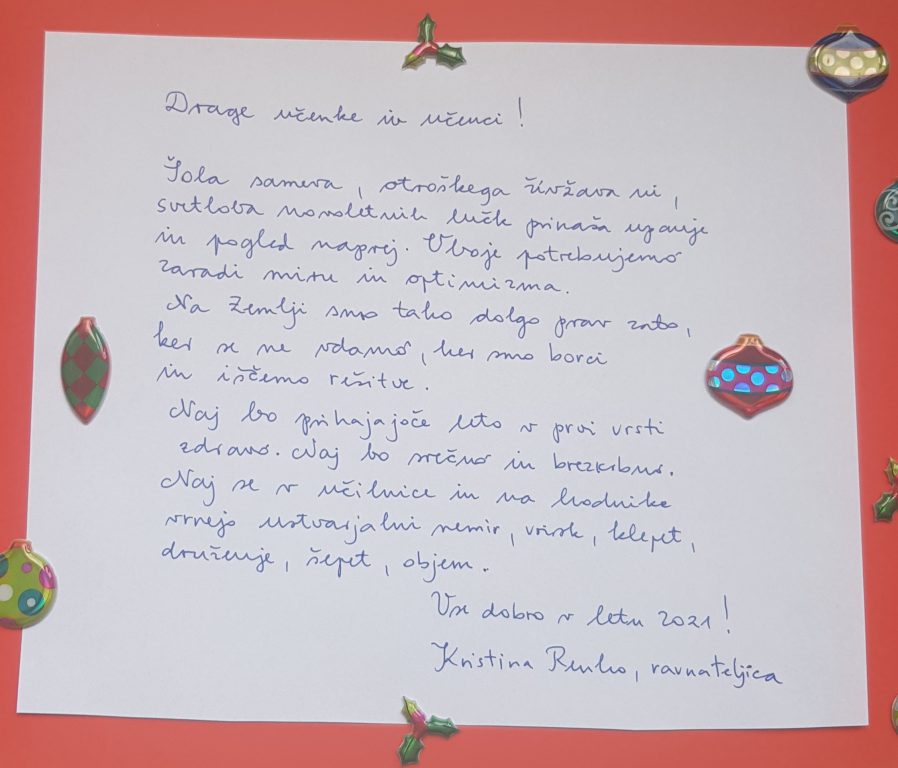 Drage učenke in učenci!
Šola sameva, otroškega živžava ni,
svetloba novoletnih lučk prinaša upanje
in pogled naprej. Oboje potrebujemo
zaradi miru in optimizma.
Na Zemlji smo tako dolgo prav zato,
ker se ne vdamo, ker smo borci
in iščemo rešitve.
Naj bo prihajajoče leto v prvi vrsti
zdravo. Naj bo srečno in brezskrbno.
Naj se v učilnice in na hodnike
vrnejo ustvarjalni nemir, vrisk, klepet,
druženje, šepet, objem.
Vse dobro v letu 2021!
Kristina Renko, ravnateljica